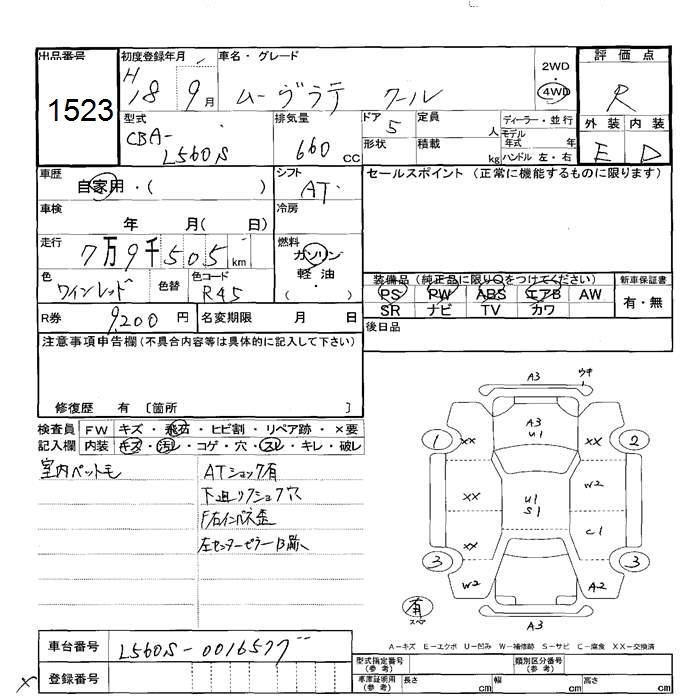 出品番号 初度登録年月 車名・グレード 2WD 評価点
1523 H 18 9月 ムーヴラテ クール 4WD R
型式 排気量 ドア 定員 ディーラー・並行 外装 内装
CBA- 5 人 モデル 年式 年
L560S 660 CC 形状 積載 kg ハンドル 左・右 E D
車歴 自家用・( ) シフト AT セールスポイント(正常に機能するものに限ります)
車検 年 月( 日) 冷房
走行 7万9千505km 燃料 ガソリン
色 ワインレッド 色替 色コード R45 軽油 ( )
装備品(純正品に限り○をつけてください) 新車保証書
PS PW ABS エアB AW 有・無
SR ナビ TV カワ
R券 9,200円 名変期限 月 日 後日品
注意事項申告欄(不具合内容等は具体的に記入して下さい)
修復歴 有〔箇所 〕
検査員 FW キズ・飛石・ヒビ割・リペア跡・×要
記入欄 内装 キズ・汚レ・コゲ・穴・スレ・キレ・破レ
室内ペット毛 ATショック有
下廻リクショク穴
F右インパネ歪
左センターピラーB跡
A3 ウキ
A3
U1
1 XX XX 2
XX W2
U1
S1
XX C1
3 W2 A2 3
有
スペア
A3
A-キズ E-エクボ U-凹み W-補修跡 S-サビ C-腐食 XX-交換済
車台番号 L560S-0016577
登録番号
×
型式指定番号(参考) 類別区分番号(参考)
車庫証明(参考) 長さ cm 幅 cm 高さ cm